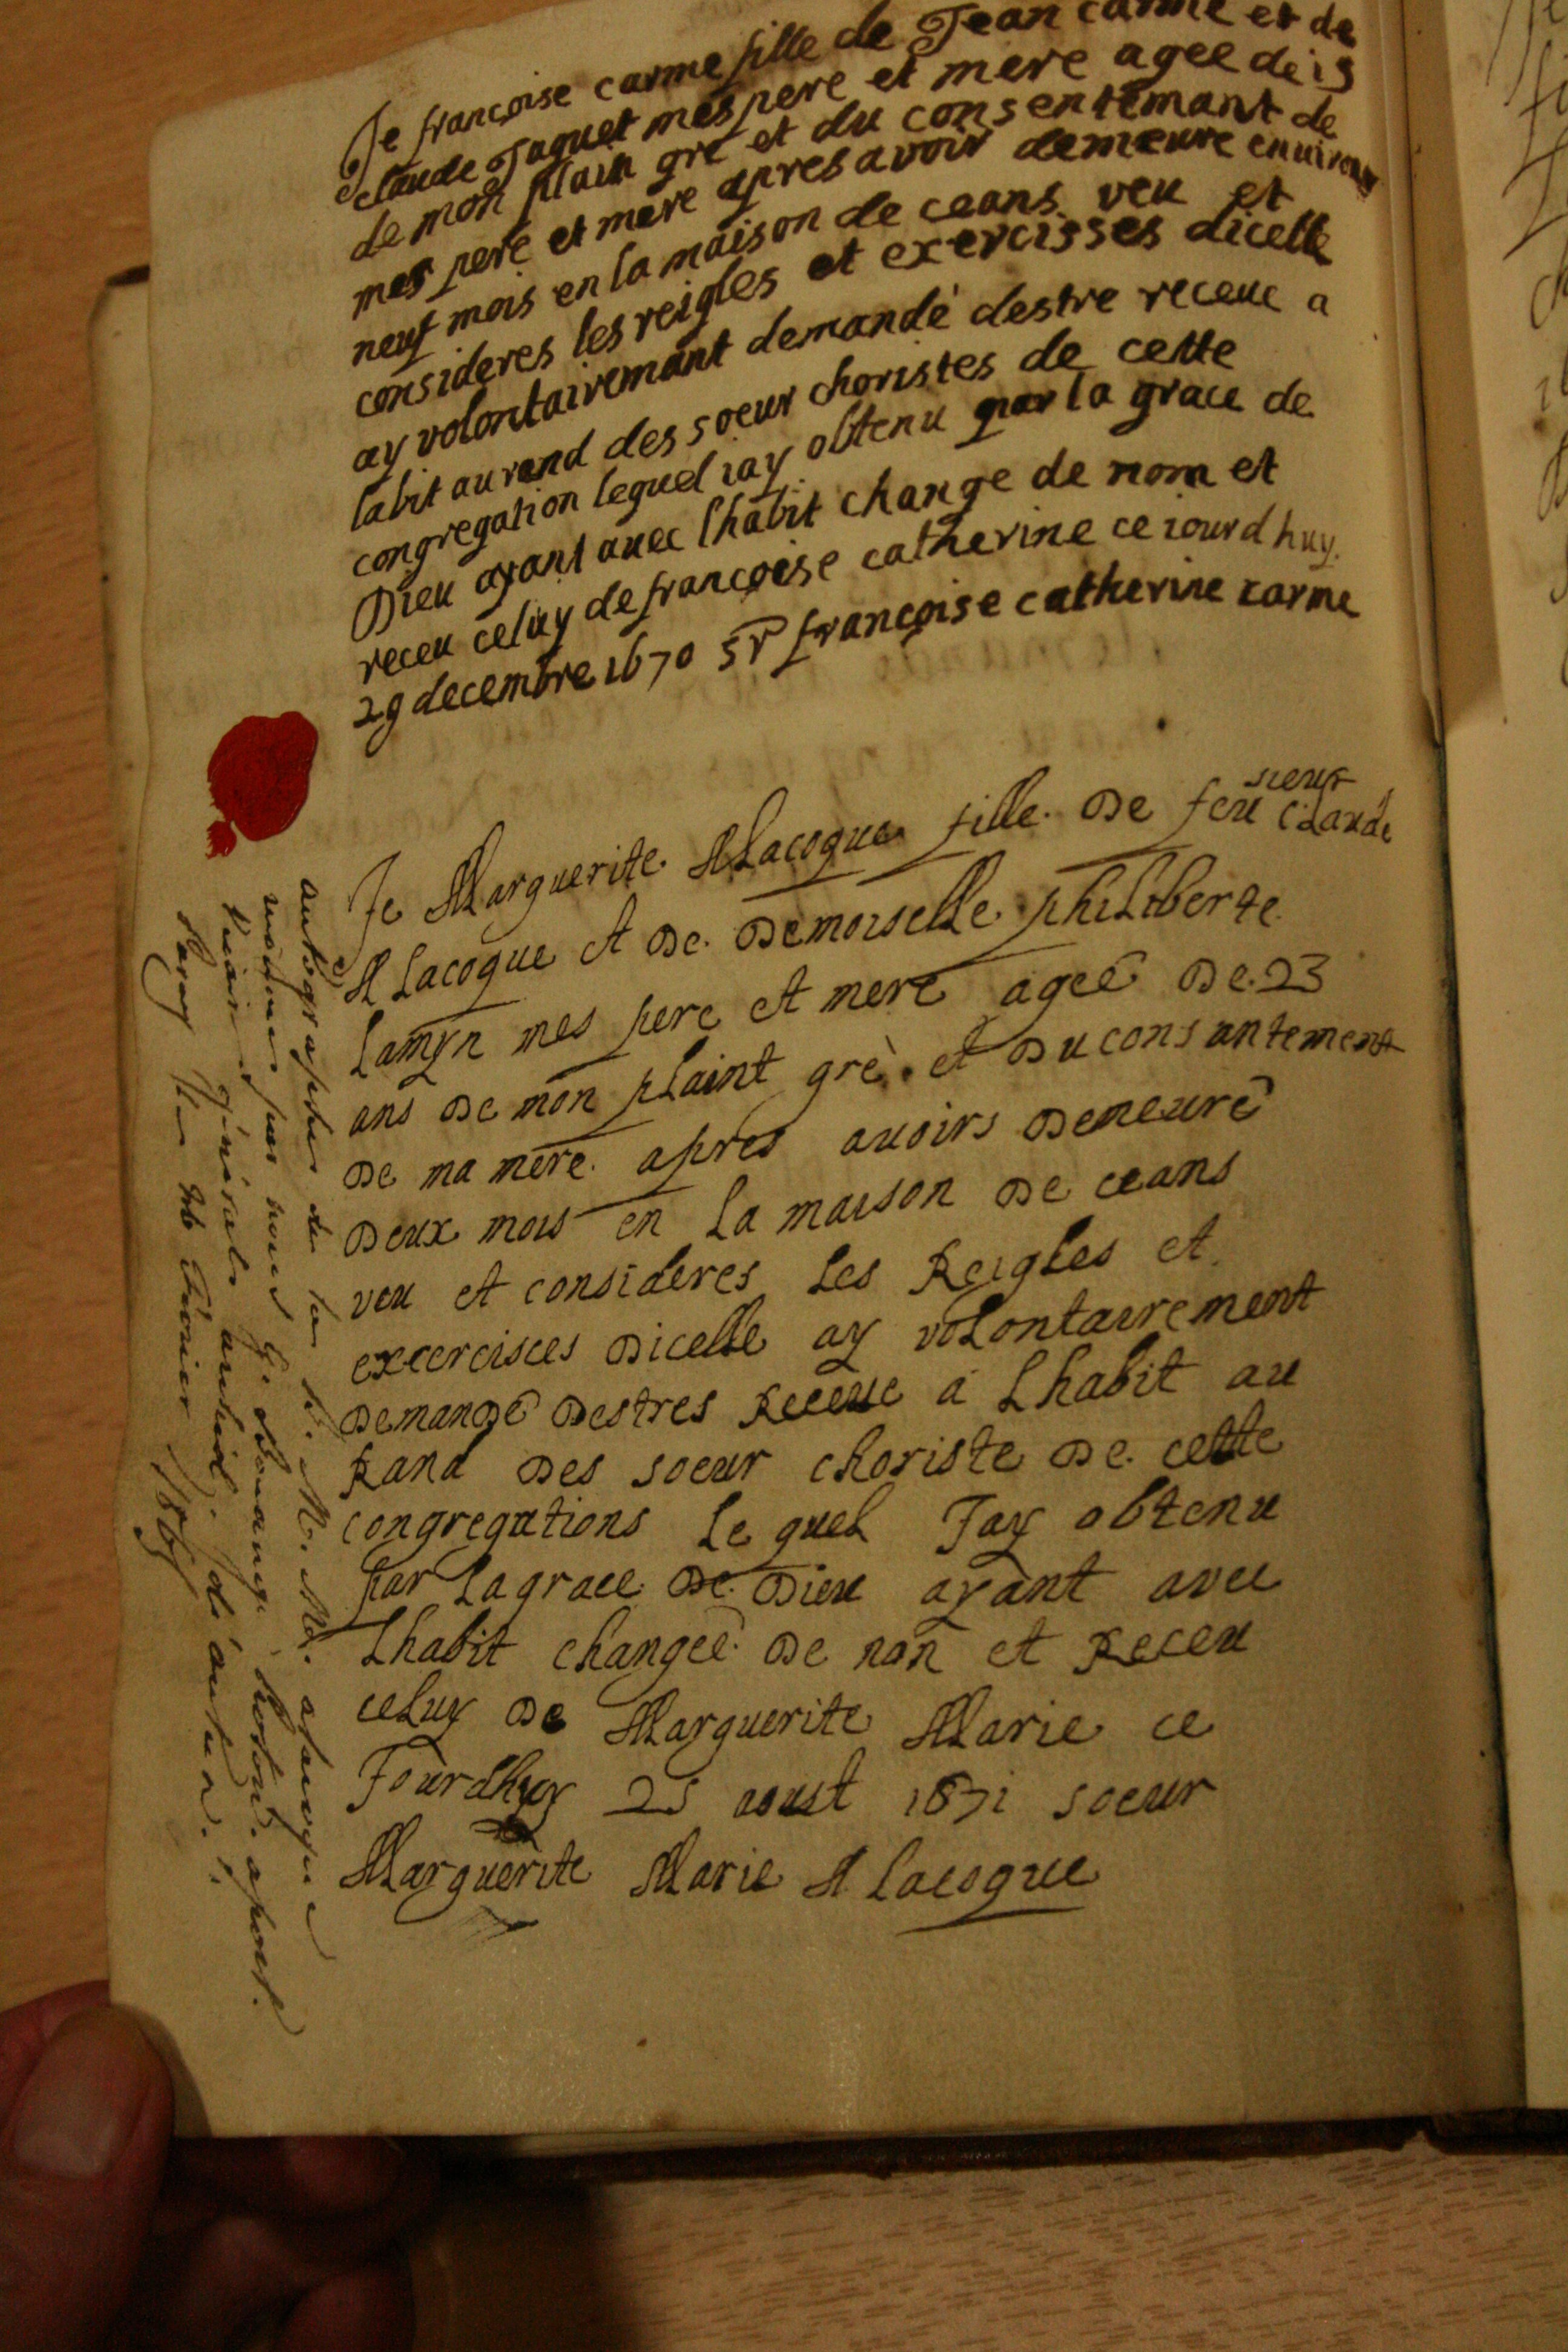 Je françoise carme fille de Jean carme et de
claude Jaquet mes pere et mere agee de 19
de mon plain gre et du consentemant de
mes pere et mere apres avoir demeure enuiron
neuf mois en la maison de ceans veu et
consideres les reigles et exercisses dicelle
ay volontairemant demandé destre receue a
labit au rand des soeur choristes de cette
congregation lequel iay obtenu par la grace de
Dieu ayant auec lhabit change de nom et
receu celuy de francoise catherine ce iourdhuy
29 decembre 1670 sr françoise catherine carme
Je Marguerite Alacoque fille De feu sieur Claude
A Lacoque et De Demoiselle philiberte
Lamyn mes pere et mere ageé De 23
ans De mon plaint gré et Du consantement
De ma mere apres auoirs Demeuré
Deux mois en La maison De ceans
veu et consideres Les Reigles et
excercisces Dicelle ay volontairement
Demandé Destres Receue a Lhabit au
Rand Des soeur choriste De cette
congregations Le quel Jay obtenu
par La grace De Dieu ayant avec
Lhabit changeé De non et Receu
celuy De Marguerite Marie ce
Jourdhuy 25 aoust 1671 soeur
Marguerite Marie A Lacoque
autographe de la B. M. Me. alacoque
par nous
Vicaire général
Paray 1865